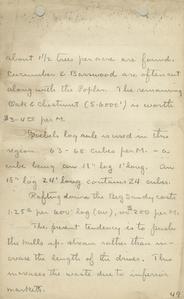 about 1½ trees per acre are found.
Cucumber & Basswood are often cut
along with the Poplar. The remaining
Oak & Chestnut (5-6000') is worth
$3-4.00 per M.
log rule is used in this
region. 63-65 cubes per M. - a
cube being an 18" log 1' long. An
18" log 24' long contains 24 cubes.
Rafting down the Big Sandy costs
1.25 per
The present tendency is to push
the mills up-stream rather than in-
crease the length of the drives. This
increases the waste due to inferior
markets.
49